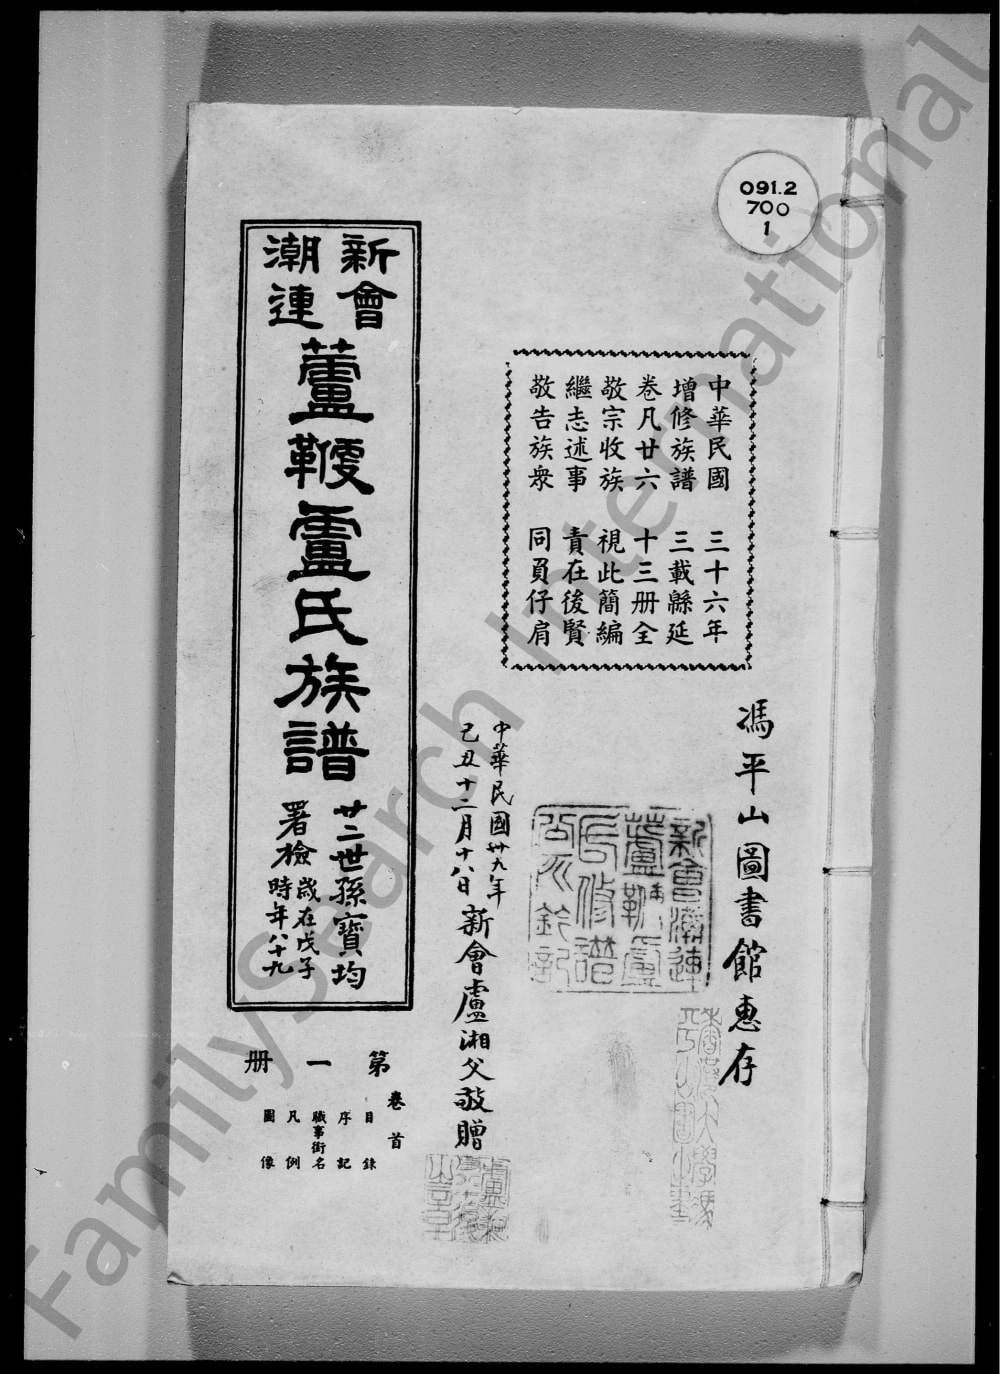 091.2
700
1
中華民國 三十六年
增修族譜 三載緜延
卷凡廿六 十三册全
敬宗收族 視此簡編
繼志述事 責在後賢
敬告族衆 同負仔肩
馮平山圖書館惠存
中華民國卅九年
己丑十二月十八日新會盧湘父敬贈
新會
潮連
蘆鞭盧氏族譜
廿二世孫寶均
署檢
歲在戊子
時年八十九
第一册
卷首
目錄
序記
職事銜名
凡例
圖像
新會潮連
蘆鞭盧
氏修譜
FamilySearch International